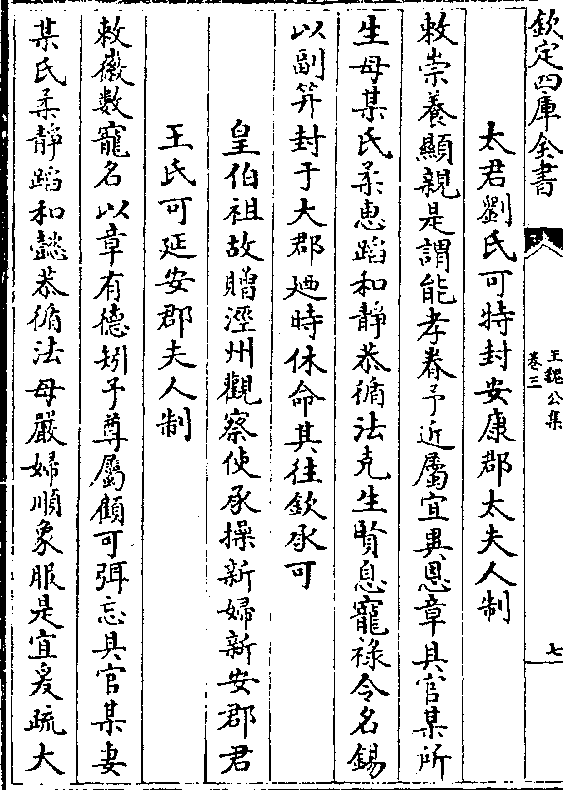 欽定四庫全書
王魏公集
卷三
七
太君劉氏可特封安康郡太夫人制
敕崇養顯親是謂能孝眷予近屬宜異恩章具官某所
生母某氏柔惠蹈和靜恭循法克生賢息寵祿令名錫
以副笄封于大郡廸時休命其往欽承可
皇伯祖故贈涇州觀察使承操新婦新安郡君
王氏可延安郡夫人制
敕徽數寵名以章有德矧予尊屬顧可弭忘具官某妻
某氏柔靜蹈和懿恭循法母嚴婦順象服是宜爰疏大